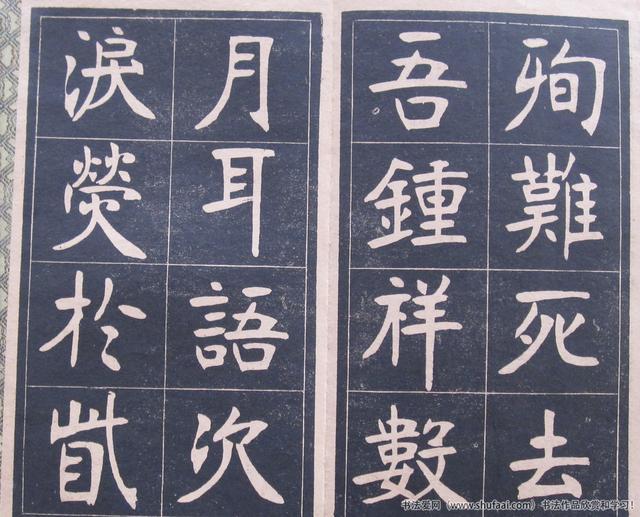 殉難死去
吾鍾祥數
月耳語次
淚熒於眥
书法爱网（www.shufaai.com）书法作品欣赏和学习！